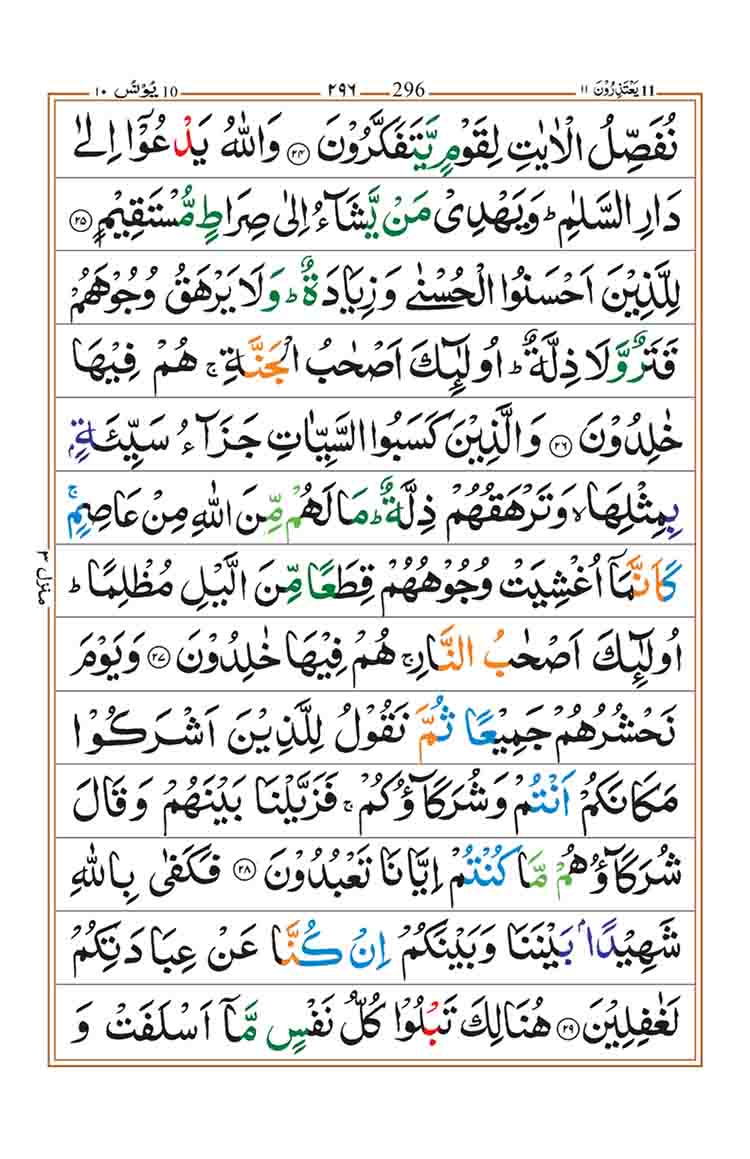 يَعْتَذِرُوْنَ ١١ 11 296 ٢٩٦ يُوْنُس 10 ١٠
نُفَصِّلُ الْاٰيٰتِ لِقَوْمٍ يَّتَفَكَّرُوْنَ ﴿٢٤﴾ وَاللّٰهُ يَدْعُوْۤا اِلٰى
دَارِ السَّلٰمِ ؕ وَيَهْدِىْ مَنْ يَّشَآءُ اِلٰى صِرَاطٍ مُّسْتَقِيْمٍ ﴿٢٥﴾
لِلَّذِيْنَ اَحْسَنُوا الْحُسْنٰى وَزِيَادَةٌ ؕ وَلَا يَرْهَقُ وُجُوْهَهُمْ
قَتَرٌ وَّلَا ذِلَّةٌ ؕ اُولٰٓئِكَ اَصْحٰبُ الْجَنَّةِ ۚ هُمْ فِيْهَا
خٰلِدُوْنَ ﴿٢٦﴾ وَالَّذِيْنَ كَسَبُوا السَّيِّاٰتِ جَزَآءُ سَيِّئَةٍۢ
بِمِثْلِهَا ۙ وَتَرْهَقُهُمْ ذِلَّةٌ ؕ مَا لَهُمْ مِّنَ اللّٰهِ مِنْ عَاصِمٍ ۚ
كَاَنَّمَاۤ اُغْشِيَتْ وُجُوْهُهُمْ قِطَعًا مِّنَ الَّيْلِ مُظْلِمًا ؕ
اُولٰٓئِكَ اَصْحٰبُ النَّارِ ۚ هُمْ فِيْهَا خٰلِدُوْنَ ﴿٢٧﴾ وَيَوْمَ
نَحْشُرُهُمْ جَمِيْعًا ثُمَّ نَقُوْلُ لِلَّذِيْنَ اَشْرَكُوْا
مَكَانَكُمْ اَنْتُمْ وَشُرَكَآؤُكُمْ ۚ فَزَيَّلْنَا بَيْنَهُمْ وَقَالَ
شُرَكَآؤُهُمْ مَّا كُنْتُمْ اِيَّانَا تَعْبُدُوْنَ ﴿٢٨﴾ فَكَفٰى بِاللّٰهِ
شَهِيْدًاۢ بَيْنَنَا وَبَيْنَكُمْ اِنْ كُنَّا عَنْ عِبَادَتِكُمْ
لَغٰفِلِيْنَ ﴿٢٩﴾ هُنَالِكَ تَبْلُوْا كُلُّ نَفْسٍ مَّاۤ اَسْلَفَتْ وَ
منزل ٣